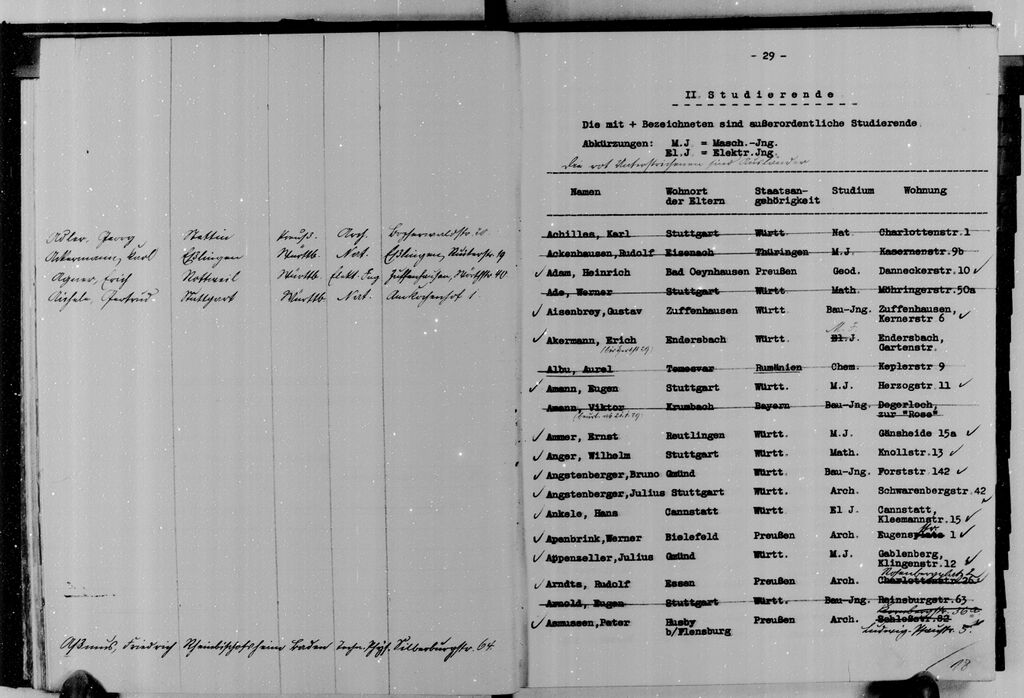 Adler, Georg Stettin Preuß. Arch.
Ackermann, Kurt Eßlingen Württb. Nat. Eßlingen,
Agner, Erich Rottweil Württb. Elekt. Ing Zuffenhausen,
Aichele, Gertrud. Stuttgart Württb. Nat. Am Kochenhof 1
Aßmus, Friedrich Rheinbischofsheim Baden Techn. Phys. Silberburgstr. 64
- 29 -
II. Studierende
Die mit + Bezeichneten sind außerordentliche Studierende.
Abkürzungen: M.J = Masch.-Jng.
El.J = Elektr.Jng
Die rot Unterstrichenen sind Ausländer
Namen Wohnort Staatsan- Studium Wohnung
der Eltern gehörigkeit
Achilles, Karl Stuttgart Württ. Nat. Charlottenstr.1
Ackenhausen,Rudolf Eisenach Thüringen M.J. Kasernenstr.9b
✓ Adam, Heinrich Bad Oeynhausen Preußen Geod. Danneckerstr.10 ✓
Ade, Werner Stuttgart Württ. Math. Möhringerstr.50a
✓ Aisenbrey,Gustav Zuffenhausen Württ. Bau-Jng. Zuffenhausen,
Kernerstr 6 ✓
M.J.
✓ Akermann, Erich Endersbach Württ. El.J. Endersbach,
Gartenstr.
Albu, Aurel Temesvar Rumänien Chem. Keplerstr 9
✓ Amann, Eugen Stuttgart Württ. M.J. Herzogstr.11 ✓
Amann, Viktor Krumbach Bayern Bau-Jng. Degerloch,
zur "Rose"
✓ Ammer, Ernst Reutlingen Württ. M.J. Gänsheide 15a ✓
✓ Anger, Wilhelm Stuttgart Württ. Math. Knollstr.13 ✓
✓ Angstenberger,Bruno Gmünd Württ. Bau-Jng. Forststr 142 ✓
✓ Angstenberger,Julius Stuttgart Württ. Arch. Schwarenbergstr.42
✓ Ankele, Hans Cannstatt Württ. El J. Cannstatt,
Kleemannstr.15 ✓
str.
✓ Apenbrink,Werner Bielefeld Preußen Arch. Eugensplatz 1 ✓
✓ Appenzeller,Julius Gmünd Württ. M.J. Gablenberg,
Klingenstr.12 ✓
✓ Arndts, Rudolf Essen Preußen Arch. Charlottenstr.26
Arnold, Eugen Stuttgart Württ. Bau-Jng. Reinsburgstr.63
✓ Asmussen,Peter Husby Preußen Arch. Schloßstr.82
b/Flensburg
18